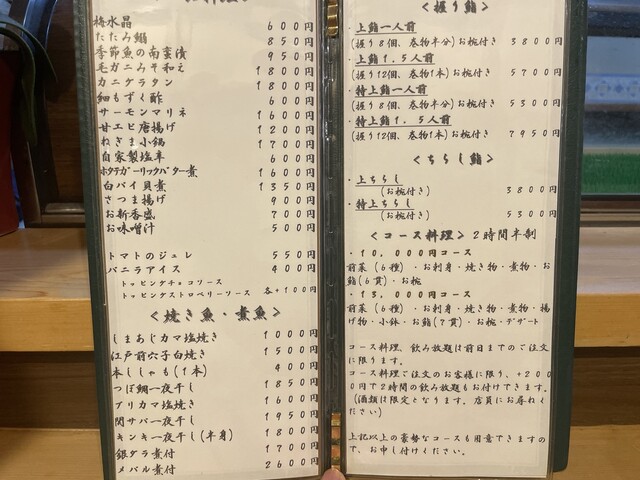 梅水晶 600円
たたみ鰯 850円
季節魚の南蛮漬 950円
毛ガニみそ和え 1800円
カニグラタン 1800円
細もずく酢 600円
サーモンマリネ 1600円
甘エビ唐揚げ 1200円
ねぎま小鍋 1700円
自家製塩辛 600円
ホタテガーリックバター煮 1600円
白バイ貝煮 1350円
さつま揚げ 900円
お新香盛 700円
お味噌汁 500円
トマトのジュレ 550円
バニラアイス 400円
トッピングチョコソース
トッピングストロベリーソース 各+100円
<焼き魚・煮魚>
しまあじカマ塩焼き 1000円
江戸前穴子白焼き 1500円
本ししゃも(1本) 400円
つぼ鯛一夜干し 1850円
ブリカマ塩焼き 1600円
関サバ一夜干し 1950円
キンキ一夜干し(半身) 1800円
銀ダラ煮付 1700円
メバル煮付 2600円
<握り鮨>
・上鮨一人前
(握り8個、巻物半分)お椀付き 3800円
・上鮨1.5人前
(握り12個、巻物1本)お椀付き 5700円
・特上鮨一人前
(握り8個、巻物半分)お椀付き 5300円
・特上鮨1.5人前
(握り12個、巻物1本)お椀付き 7950円
<ちらし鮨>
・上ちらし
(お椀付き) 3800円
・特上ちらし
(お椀付き) 5300円
<コース料理>2時間半制
・10,000円コース
前菜(6種)・お刺身・焼き物・煮物・お
鮨(6貫)・お椀
・13,000円コース
前菜(6種)・お刺身・焼き物・煮物・揚
げ物・小鉢・お鮨(7貫)・お椀・デザート
コース料理、飲み放題は前日までのご注文
に限ります。
コース料理ご注文のお客様に限り、+200
0円で2時間の飲み放題もお付けできます。
(酒類は限定となります。店員にお尋ねく
ださい)
上記以上の豪勢なコースも用意できますの
で、お申し付けください。